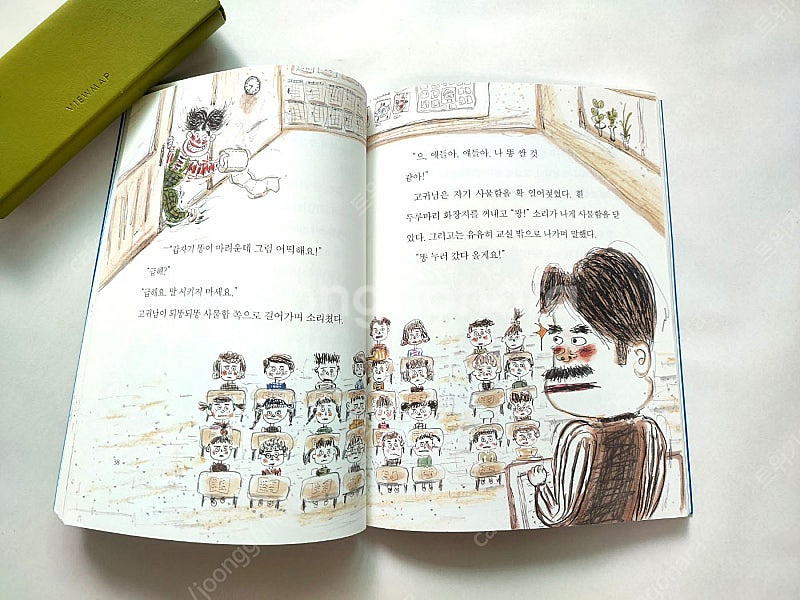 VIEWMAP
"갑자기 똥이 마려운데 그럼 어떡해요!"
"급해?"
"급해요. 말 시키지 마세요."
고귀남이 뒤뚱뒤뚱 사물함 쪽으로 걸어가며 소리쳤다.
38
"으, 얘들아, 얘들아. 나 똥 쌀 것
같아!"
고귀남은 자기 사물함을 확 열어젖혔다. 흰
두루마리 화장지를 꺼내고 "꽝!" 소리가 나게 사물함을 닫
았다. 그러고는 유유히 교실 밖으로 나가며 말했다.
"똥 누러 갔다 올게요!"